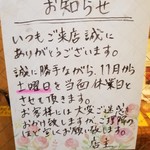 お知らせ
いつもご来店誠に
ありがとうございます。
誠に勝手ながら、11月から
土曜日を当面休業日と
させて頂きます。
お客様には大変ご迷惑
おかけ致しますがご理解の
ほど宜しくお願い致します。
店主